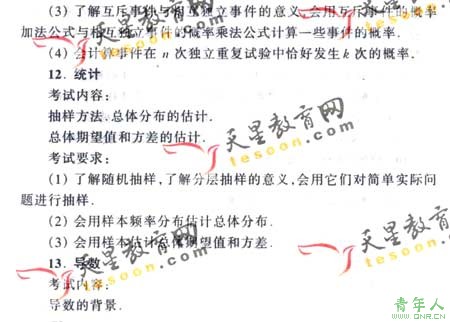 (3) 了解互斥事件与相互独立事件的意义,会用互斥事件的概率
加法公式与相互独立事件的概率乘法公式计算一些事件的概率.
(4) 会计算事件在 n 次独立重复试验中恰好发生 k 次的概率.
12. 统计
考试内容:
抽样方法.总体分布的估计.
总体期望值和方差的估计.
考试要求:
(1) 了解随机抽样,了解分层抽样的意义,会用它们对简单实际问
题进行抽样.
(2) 会用样本频率分布估计总体分布.
(3) 会用样本估计总体期望值和方差.
13. 导数
考试内容:
导数的背景.
天星教育网
tesoon.com
天星教育网
tesoon.com
天星教育网
tesoon.com
天星教育网
tesoon.com
天星教育网
tesoon.com
青年人
www.QNR.CN